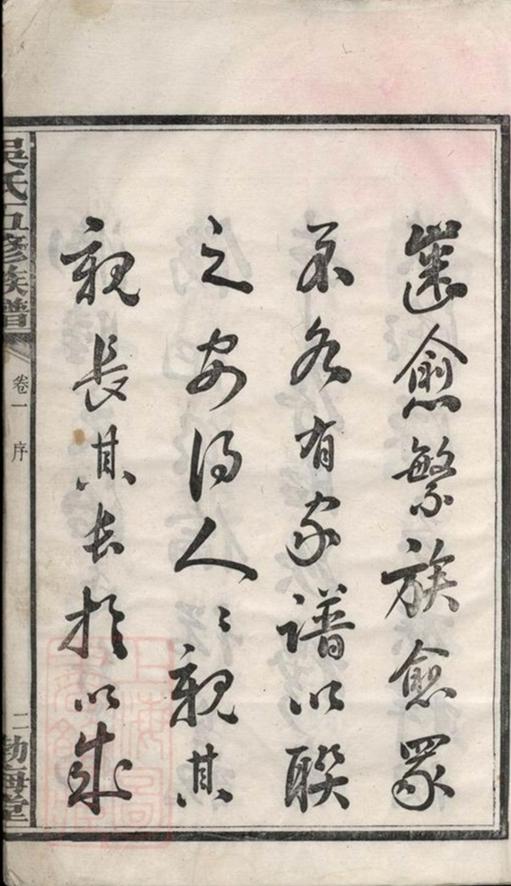 愈繁族愈眾
不各有家譜以聯
之安得人人親其
親長其長於以成
吳氏五修族譜
卷一 序
二 勃海堂